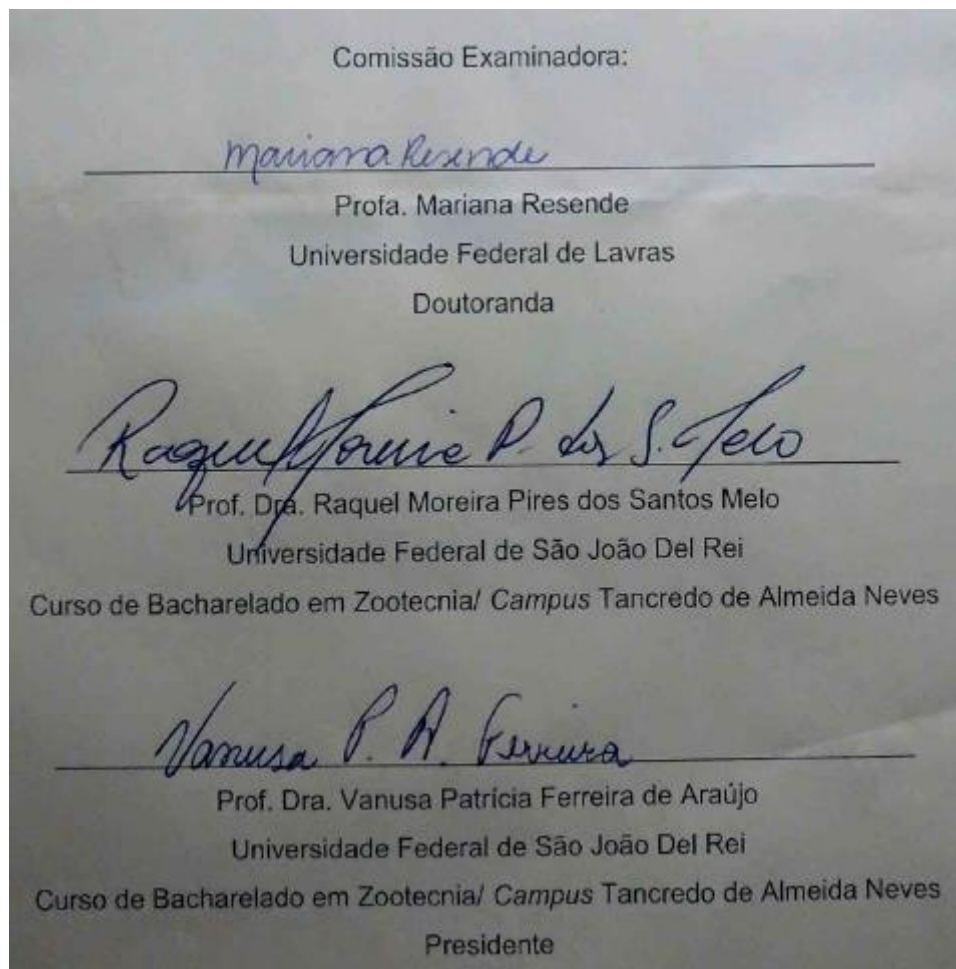 Comissão Examinadora:
Mariana Resende
Profa. Mariana Resende
Universidade Federal de Lavras
Doutoranda
Raquel Moreira P. dos S. Melo
Prof. Dra. Raquel Moreira Pires dos Santos Melo
Universidade Federal de São João Del Rei
Curso de Bacharelado em Zootecnia/ Campus Tancredo de Almeida Neves
Vanusa P. A. Ferreira
Prof. Dra. Vanusa Patrícia Ferreira de Araújo
Universidade Federal de São João Del Rei
Curso de Bacharelado em Zootecnia/ Campus Tancredo de Almeida Neves
Presidente